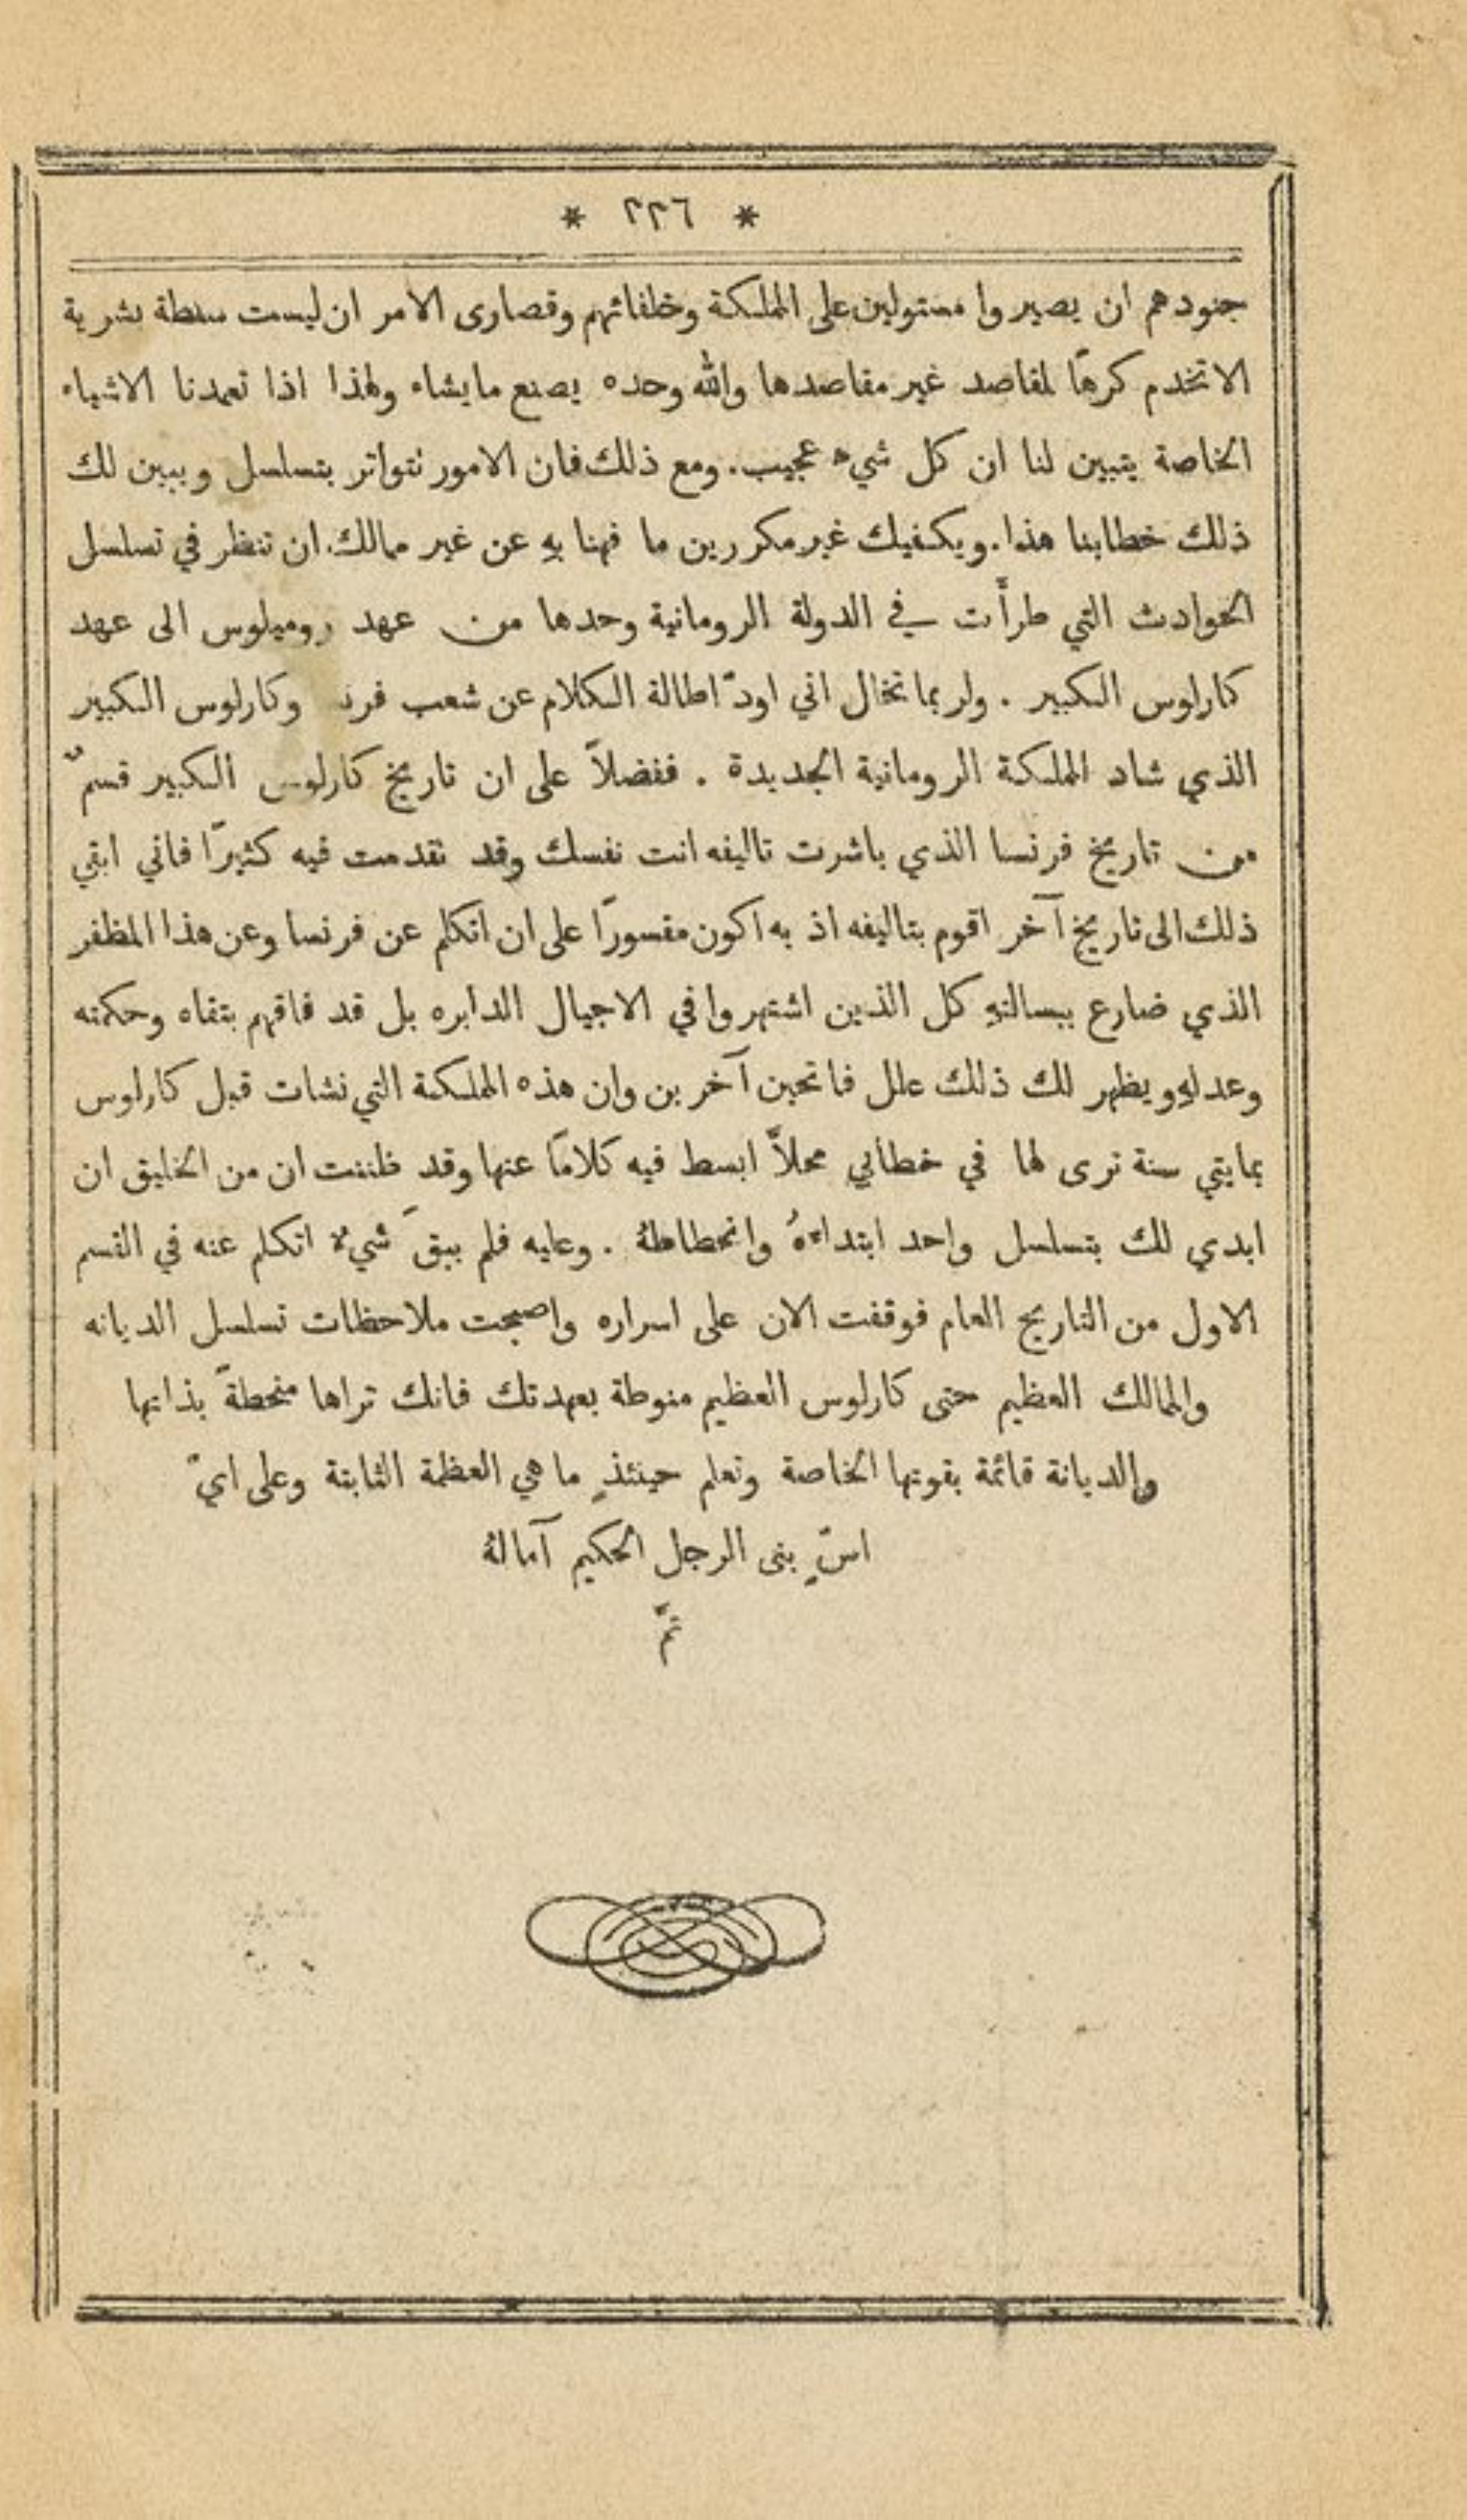 * ٢٢٦ *
جنودهم ان يصيروا مستولين على المملكة وخلفائهم وقصارى الامر ان ليست سلطة بشرية
الاتخدم كرهًا لمقاصد غير مقاصدها والله وحده يصنع مايشاء ولهذا اذا تعمدنا الاشياء
الخاصة يتبين لنا ان كل شيء عجيب. ومع ذلك فان الامور نتواتر بتسلسل ويبين لك
ذلك خطابنا هذا. ويكفيك غير مكررين ما فهنا بهِ عن غير ممالك. ان تنظر في تسلسل
الحوادث التي طرأَت في الدولة الرومانية وحدها من عهد روميلوس الى عهد
كارلوس الكبير . ولربما تخال اني اودّ اطالة الكلام عن شعب وكارلوس الكبير
الذي شاد المملكة الرومانية الجديدة . ففضلاً على ان تاريخ كارلوس الكبير قسمٌ
من تاريخ فرنسا الذي باشرت تاليفه انت نفسك وقد نقدمت فيه كثيرًا فاني ابقي
ذلك الى تاريخ آخر اقوم بتاليفه اذ به اكون مقسورًا على ان اتكلم عن فرنسا وعن هذا المظفر
الذي ضارع ببسالتهِ كل الذين اشتهروا في الاجيال الدابره بل قد فاقهم بتقاه وحكمته
وعدلهِ ويظهر لك ذلك علل فاتحين آخرين وان هذه المملكة التي نشات قبل كارلوس
بمايتي سنة ترى لها في خطابي محلاً ابسط فيه كلامًا عنها وقد ظننت ان من الخليق ان
ابدي لك بتسلسل واحد ابتداءهُ وانحطاطهُ . وعليه فلم يبقَ شيءٌ اتكلم عنه في القسم
الاول من التاريخ العام فوقفت الان على اسراره واصبحت ملاحظات تسلسل الديانه
والممالك العظيم حتى كارلوس العظيم منوطة بعهدتك فانك تراها منحطةً بذاتها
والديانة قائمة بقوتها الخاصة وتعلم حينئذٍ ما هي العظمة الثابتة وعلى ايّ
اسٍّ بنى الرجل الحكيم آمالهُ
تمَّ